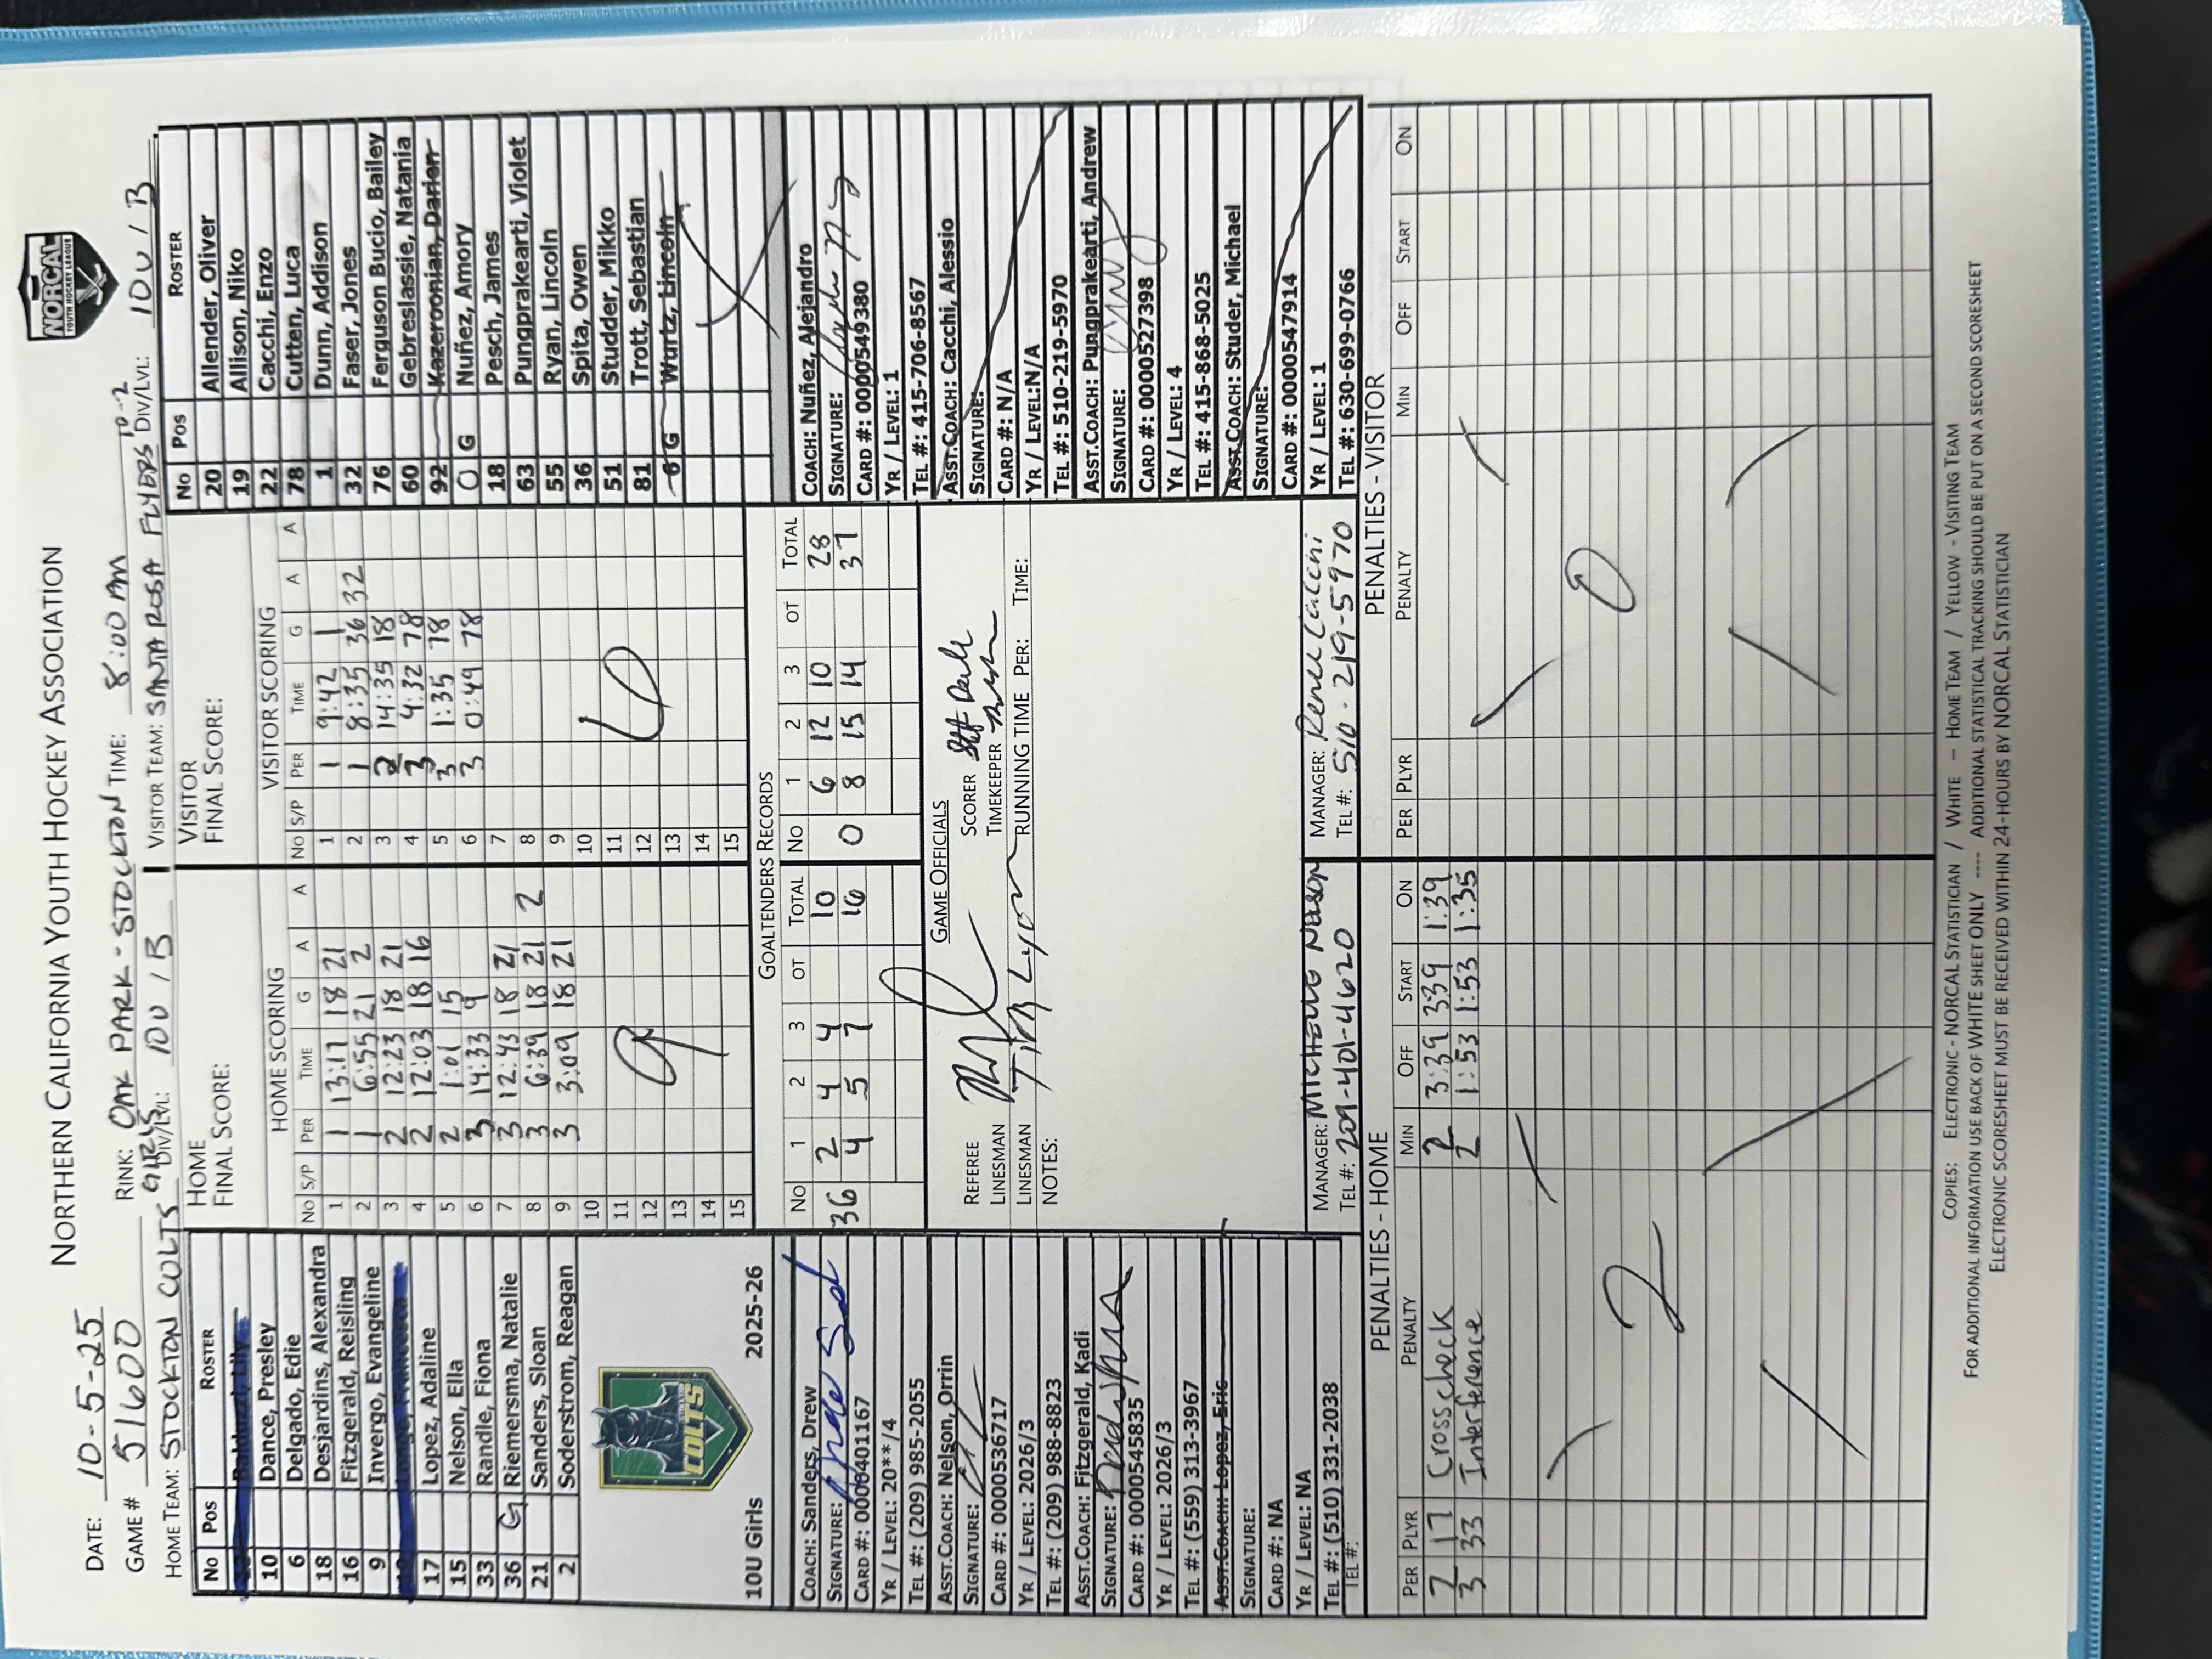 NORCAL
YOUTH HOCKEY LEAGUE
NORTHERN CALIFORNIA YOUTH HOCKEY ASSOCIATION
DATE: 10-5-25
GAME # 51600 RINK: OAK PARK - STOCKTON TIME: 8:00 AM
HOME TEAM: STOCKTON COLTS GIRLS DIV/LVL: 10U / B VISITOR TEAM: SANTA ROSA FLYERS 10-2 DIV/LVL: 10U / B
No Pos ROSTER
10 Dance, Presley
6 Delgado, Edie
18 Desjardins, Alexandra
16 Fitzgerald, Reisling
9 Invergo, Evangeline
17 Lopez, Adaline
15 Nelson, Ella
33 Randle, Fiona
36 G Riemersma, Natalie
21 Sanders, Sloan
2 Soderstrom, Reagan
COLTS
10U Girls 2025-26
HOME
FINAL SCORE:
HOME SCORING
No S/P PER TIME G A A
1 1 13:17 18 21
2 1 6:55 21 2
3 2 12:23 18 21
4 2 12:03 18 16
5 2 1:01 15
6 3 14:33 9
7 3 12:43 18 21
8 3 6:39 18 21 2
9 3 3:09 18 21
10
11
12
13
14
15
9
VISITOR
FINAL SCORE:
VISITOR SCORING
No S/P PER TIME G A A
1 1 9:42 1
2 1 8:35 36 32
3 2 14:35 18
4 3 4:32 78
5 3 1:35 78
6 3 0:49 78
7
8
9
10
11
12
13
14
15
6
No Pos ROSTER
20 Allender, Oliver
19 Allison, Niko
22 Cacchi, Enzo
78 Cutten, Luca
1 Dunn, Addison
32 Faser, Jones
76 Ferguson Bucio, Bailey
60 Gebreslassie, Natania
92 Kazeroonian, Darien
0 G Nuñez, Amory
18 Pesch, James
63 Pungprakearti, Violet
55 Ryan, Lincoln
36 Spita, Owen
51 Studder, Mikko
81 Trott, Sebastian
6 G Wurtz, Lincoln
GOALTENDERS RECORDS
No 1 2 3 OT TOTAL No 1 2 3 OT TOTAL
36 2 4 4 10 6 12 10 28
4 5 7 16 0 8 15 14 37
COACH: Sanders, Drew
SIGNATURE:
CARD #: 000401167
YR / LEVEL: 20**/4
TEL #: (209) 985-2055
ASST.COACH: Nelson, Orrin
SIGNATURE:
CARD #: 000536717
YR / LEVEL: 2026/3
TEL #: (209) 988-8823
ASST.COACH: Fitzgerald, Kadi
SIGNATURE:
CARD #: 000545835
YR / LEVEL: 2026/3
TEL #: (559) 313-3967
ASST.COACH: Lopez, Eric
SIGNATURE:
CARD #: NA
YR / LEVEL: NA
TEL #: (510) 331-2038
TEL #:
GAME OFFICIALS
REFEREE SCORER
LINESMAN Tim Lyon TIMEKEEPER
LINESMAN RUNNING TIME PER: TIME:
NOTES:
MANAGER: MICHELLE NELSON MANAGER: Renee Cacchi
TEL #: 209-401-4620 TEL #: 510-219-5970
COACH: Nuñez, Alejandro
SIGNATURE:
CARD #: 000549380
YR / LEVEL: 1
TEL #: 415-706-8567
ASST.COACH: Cacchi, Alessio
SIGNATURE:
CARD #: N/A
YR / LEVEL:N/A
TEL #: 510-219-5970
ASST.COACH: Pungprakearti, Andrew
SIGNATURE:
CARD #: 000527398
YR / LEVEL: 4
TEL #: 415-868-5025
ASST.COACH: Studer, Michael
SIGNATURE:
CARD #: 000547914
YR / LEVEL: 1
TEL #: 630-699-0766
PENALTIES - HOME
PER PLYR PENALTY MIN OFF START ON
2 17 Crosscheck 2 3:39 3:39 1:39
3 33 Interference 2 1:53 1:53 1:35
2
PENALTIES - VISITOR
PER PLYR PENALTY MIN OFF START ON
0
COPIES: ELECTRONIC - NORCAL STATISTICIAN / WHITE – HOME TEAM / YELLOW - VISITING TEAM
FOR ADDITIONAL INFORMATION USE BACK OF WHITE SHEET ONLY ---- ADDITIONAL STATISTICAL TRACKING SHOULD BE PUT ON A SECOND SCORESHEET
ELECTRONIC SCORESHEET MUST BE RECEIVED WITHIN 24-HOURS BY NORCAL STATISTICIAN